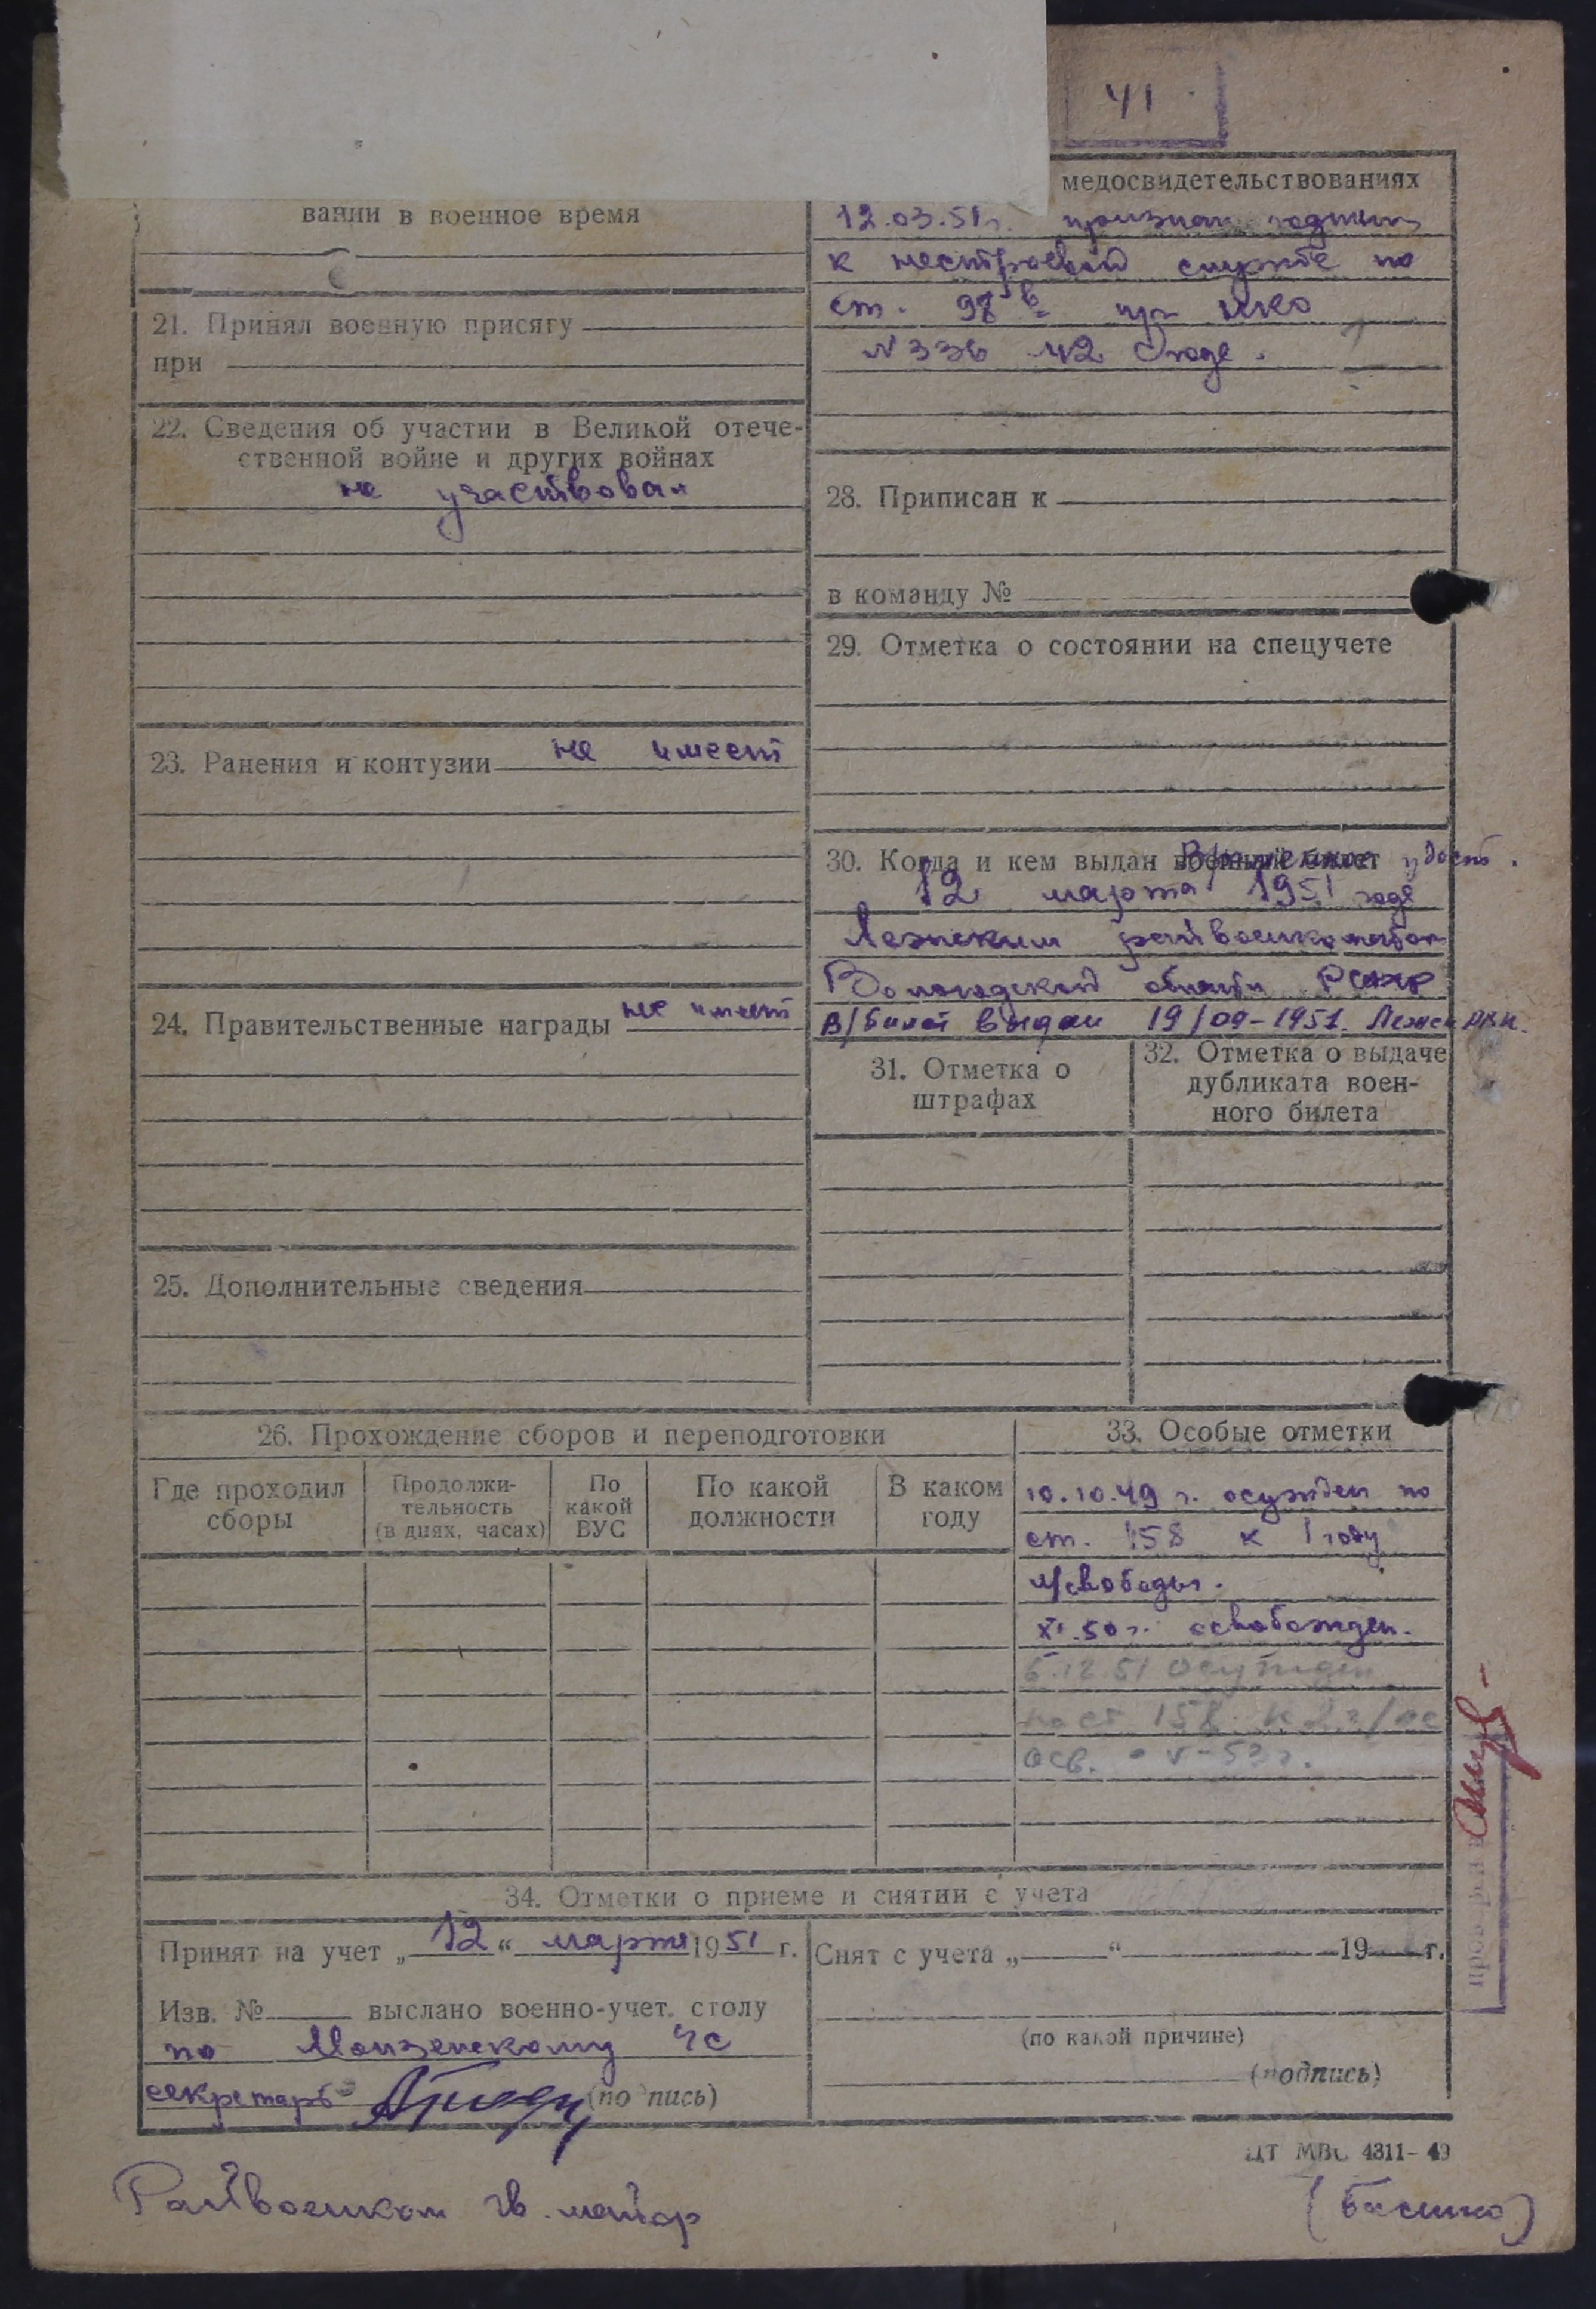 41
вании в военное время
21. Принял военную присягу
при
22. Сведения об участии в Великой отече-
ственной войне и других войнах
не участвовал
23. Ранения и контузии не имеет
24. Правительственные награды не имеет
25. Дополнительные сведения
медосвидетельствованиях
12.03.51г. признан годным
к нестроевой службе по
ст. 98 в пр НКО
№ 336 42 года.
28. Приписан к
в команду №
29. Отметка о состоянии на спецучете
30. Когда и кем выдан военный билет Временное удост.
12 марта 1951 года
Лежским райвоенкоматом
Вологодской области РСФСР
В/билет выдан 19/09-1951. Лежск РВК.
31. Отметка о
штрафах
32. Отметка о выдаче
дубликата воен-
ного билета
26. Прохождение сборов и переподготовки
Где проходил
сборы
Продолжи-
тельность
(в днях, часах)
По
какой
ВУС
По какой
должности
В каком
году
33. Особые отметки
10.10.49 г. осужден по
ст. 158 к 1 году
л/свободы.
XI.50 г. освобожден.
5.12.51 осужден
по ст 158 к 2 г/
осв. V-53 г.
34. Отметки о приеме и снятии с учета
Принят на учет „12“ марта 1951 г.
Изв. № выслано военно-учет. столу
по Монзенскому ЧС
секретарь (подпись)
Снят с учета „ “ 19 г.
(по какой причине)
(подпись)
ЦТ МВС 4311-49
Райвоенком гв. майор